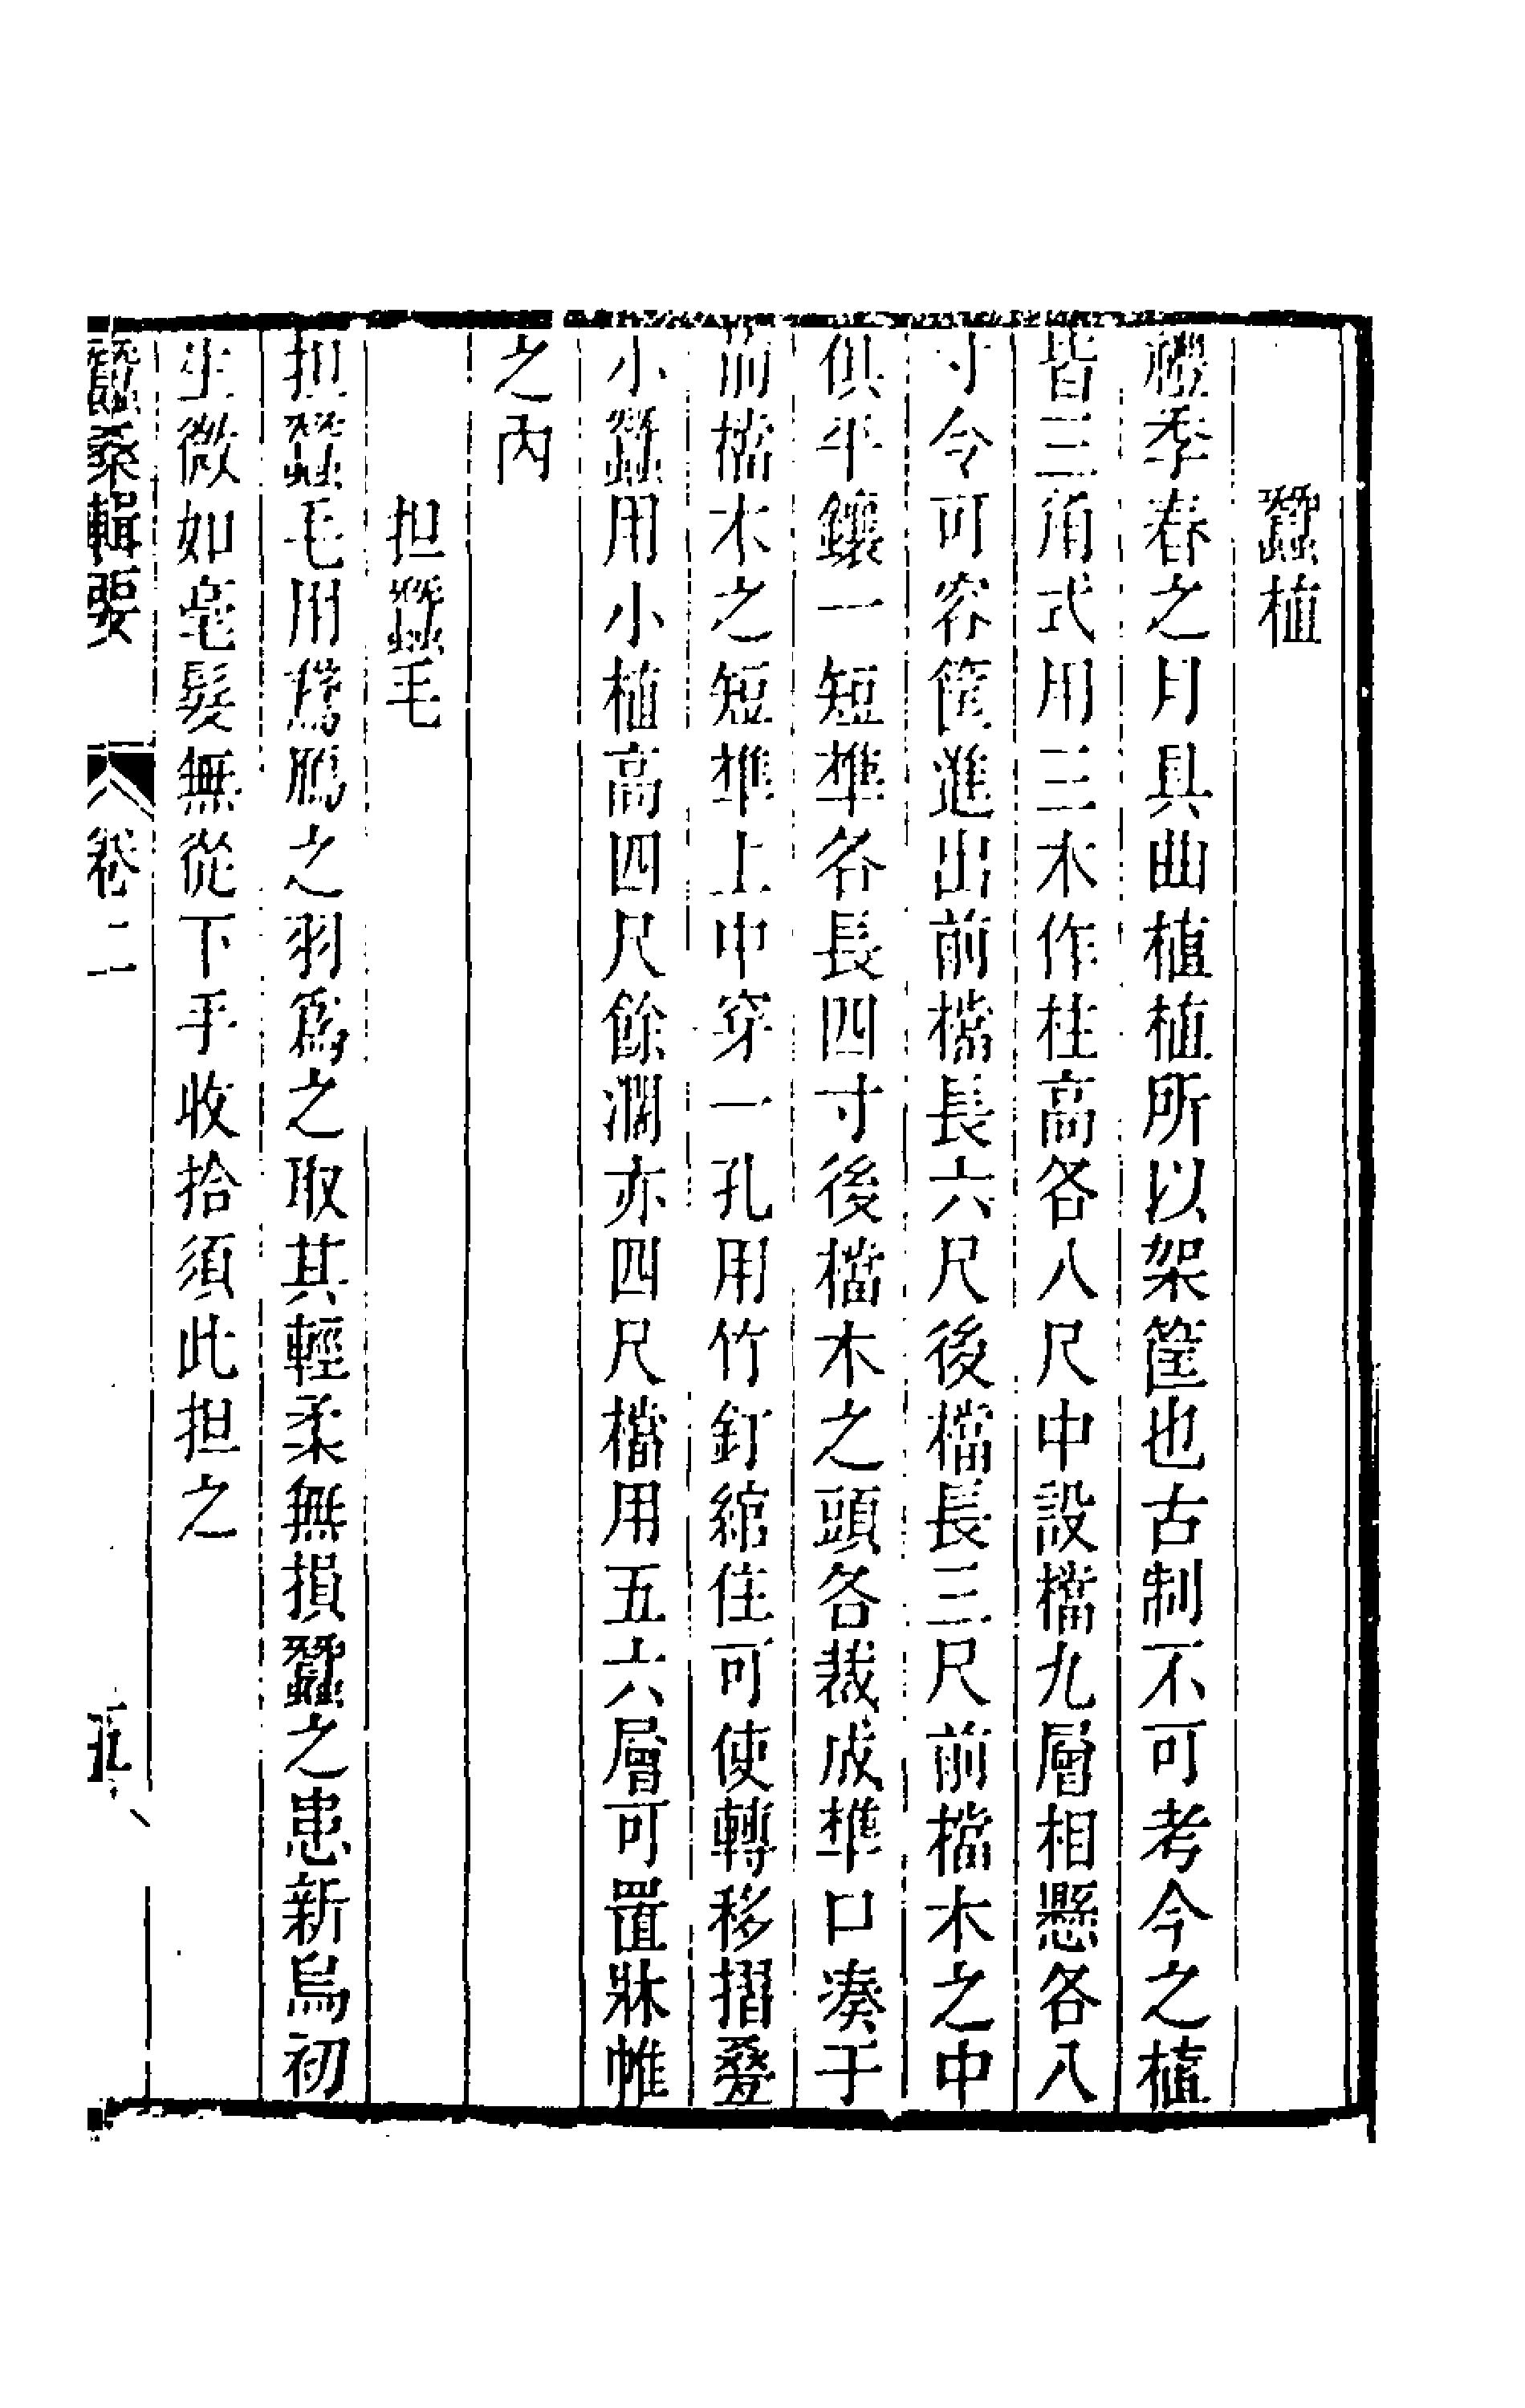 蠶植
禮季春之月具曲植植所以架筐也古制不可考今之植
皆三角式用三木作柱高各八尺中設檔九層相懸各八
寸令可容筐進出前檔長六尺後檔長三尺前檔木之中
俱平鑲一短準各長四寸後檔木之頭各裁成準口湊于
前檔木之短準上中穿一孔用竹釘綰住可使轉移摺疊
小蠶用小植高四尺餘濶亦四尺檔用五六層可置牀帷
之內
担蠶毛
担蠶毛用鵞鴈之羽爲之取其輕柔無損蠶之患新烏初
生微如毫髮無從下手收拾須此担之
蠶桑輯要 卷二